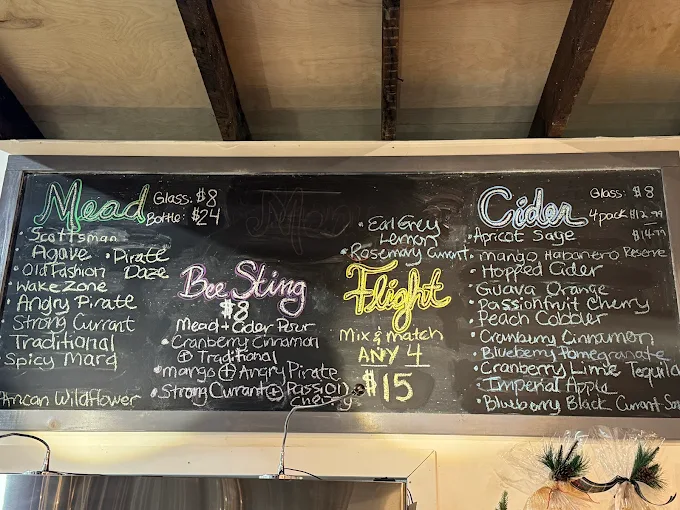 Mead Glass: $8
Bottle: $24
• Scottsman
Agave
• Pirate
Daze
• Old Fashion
• Wake Zone
• Angry Pirate
Strong Currant
• Traditional
• Spicy Marg
Wildflower
Bee Sting
$8
Mead + Cider Pour
• Cranberry Cinnamon
+ Traditional
• mango + Angry Pirate
• Strong Currant + Passion
Cherry
• Earl Grey
Lemon
• Rosemary Currant
Flight
Mix & match
ANY 4
$15
Cider Glass: $8
4 pack $12.99
$14.99
Reserve
• Apricot Sage
• mango Habanero
• Hopped Cider
• Guava Orange
• Passionfruit Cherry
Peach Cobbler
• Cranburry Cinnamon
• Blueberry Pomegranate
• Cranberry Lime Tequila
• Imperial Apple
• Blueberry Black Currant